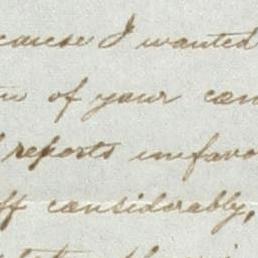 because I wanted
of your con
reports unfavo
off considerably,